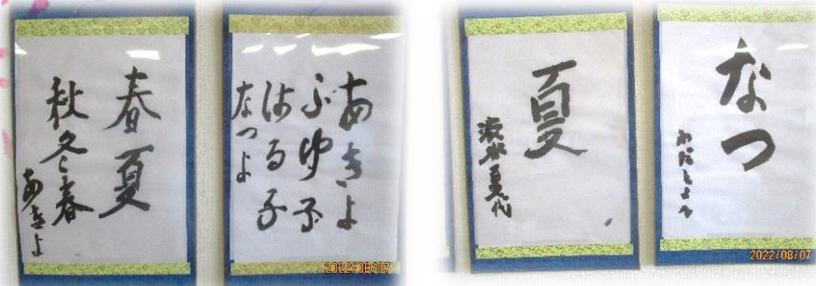 春夏
秋冬春
あきよ
あきよ
ふゆ子
はる子
なつよ
2022/08/07
夏
なつ
2022/08/07